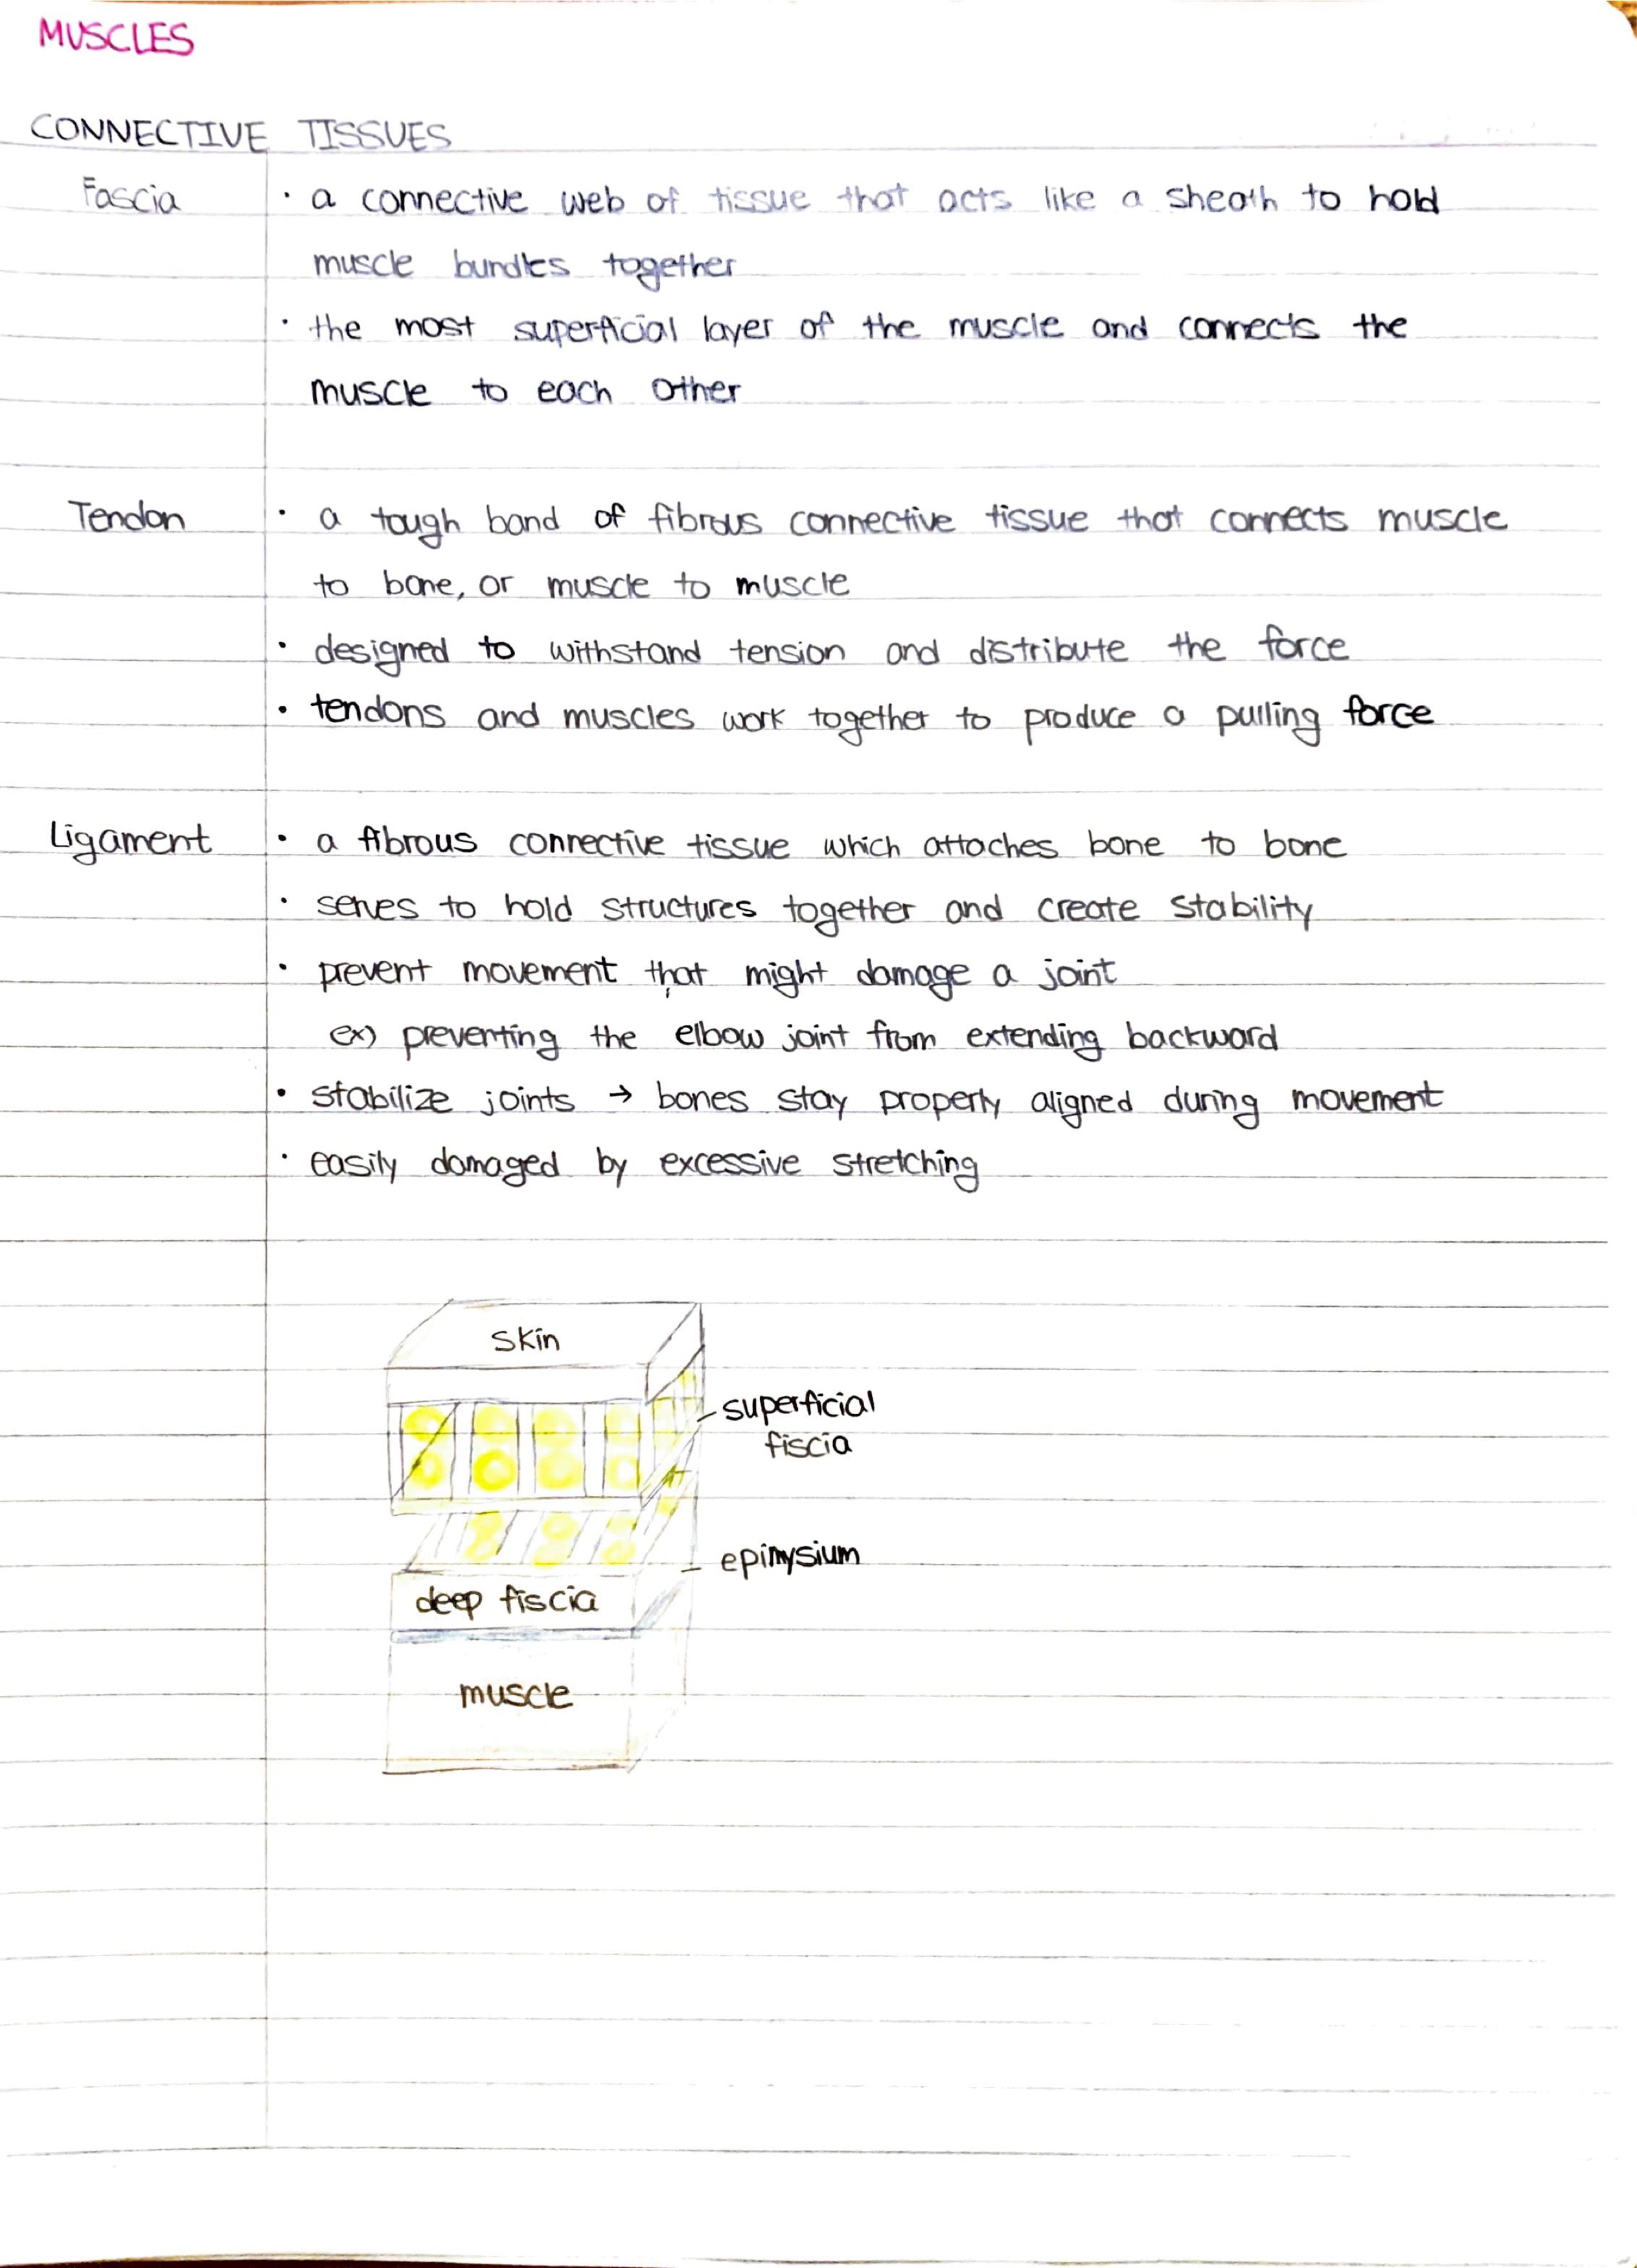 MUSCLES
CONNECTIVE TISSUES
Fascia · a connective web of tissue that acts like a sheath to hold
muscle bundles together
· the most superficial layer of the muscle and connects the
muscle to each other
Tendon · a tough band of fibrous connective tissue that connects muscle
to bone, or muscle to muscle
· designed to withstand tension and distribute the force
· tendons and muscles work together to produce a pulling force
Ligament · a fibrous connective tissue which attaches bone to bone
· serves to hold structures together and create stability
· prevent movement that might damage a joint
ex) preventing the elbow joint from extending backward
· stabilize joints → bones stay properly aligned during movement
· easily damaged by excessive stretching
skin
superficial
fiscia
epimysium
deep fiscia
muscle